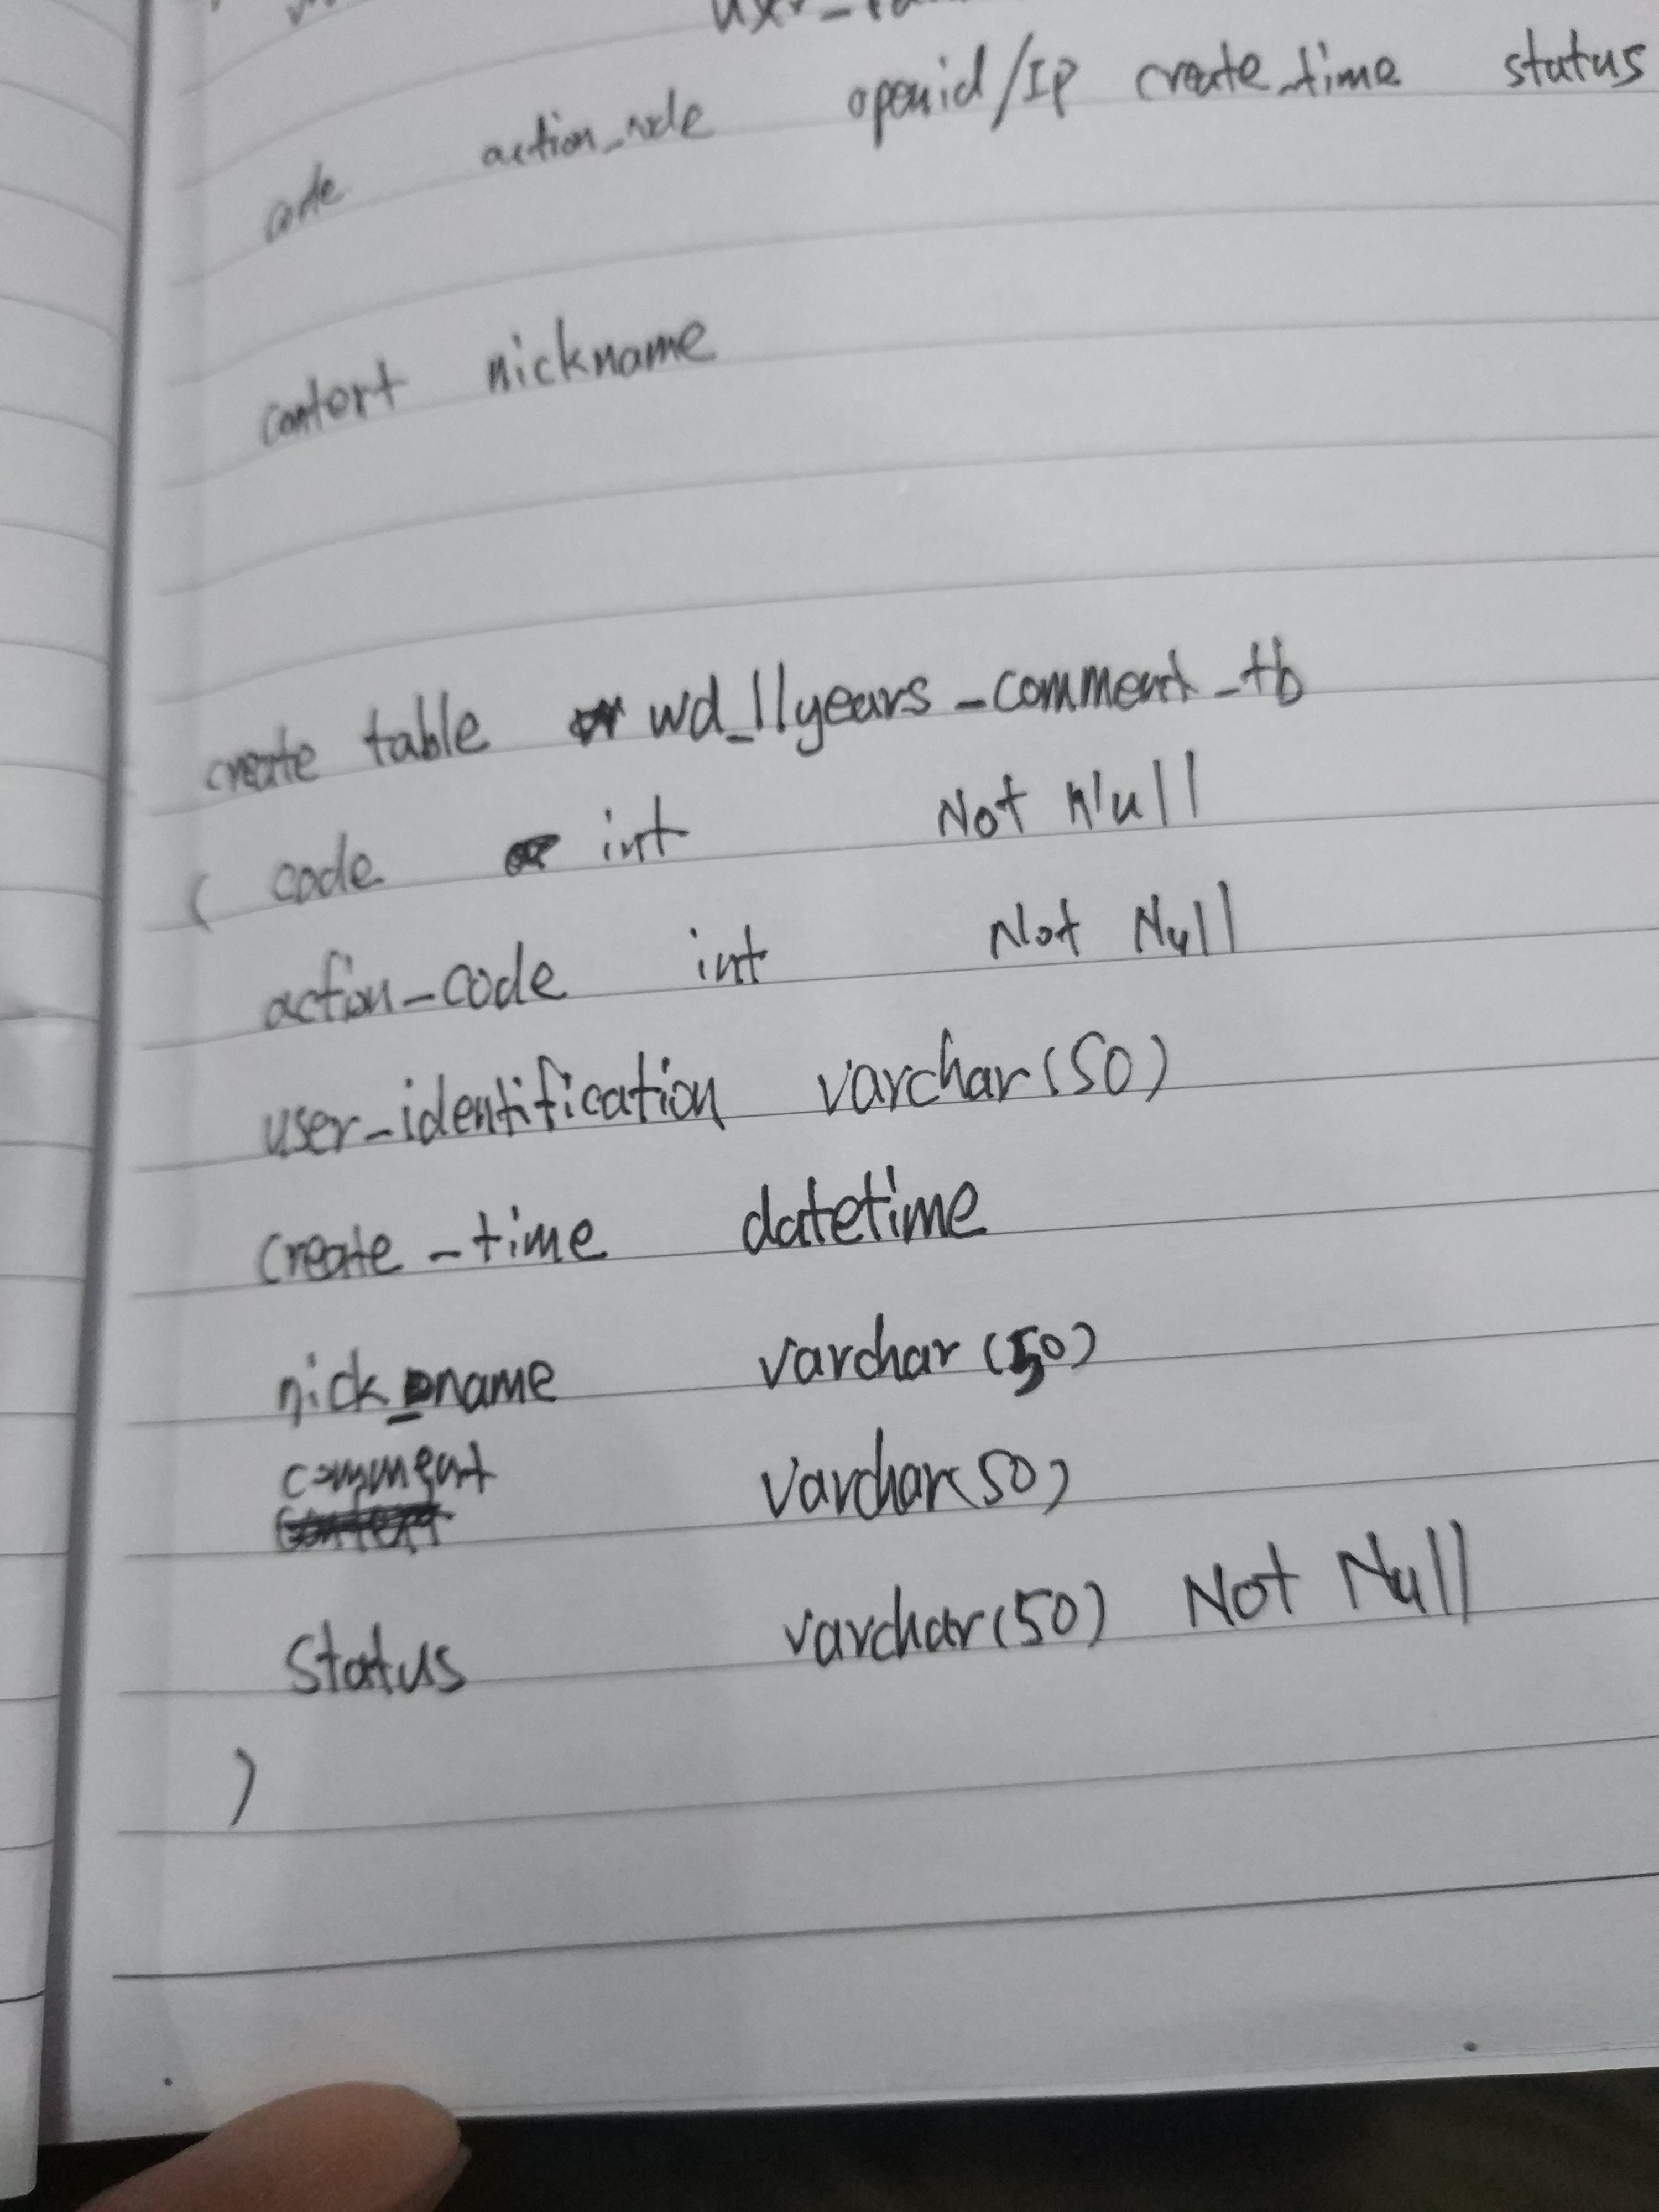 code action_code openid/IP create_time status
content nickname
create table wd_11years_comment_tb
( code int Not Null
action_code int Not Null
user_identification varchar(50)
create_time datetime
nick_name varchar(50)
comment varchar(50)
status varchar(50) Not Null
)